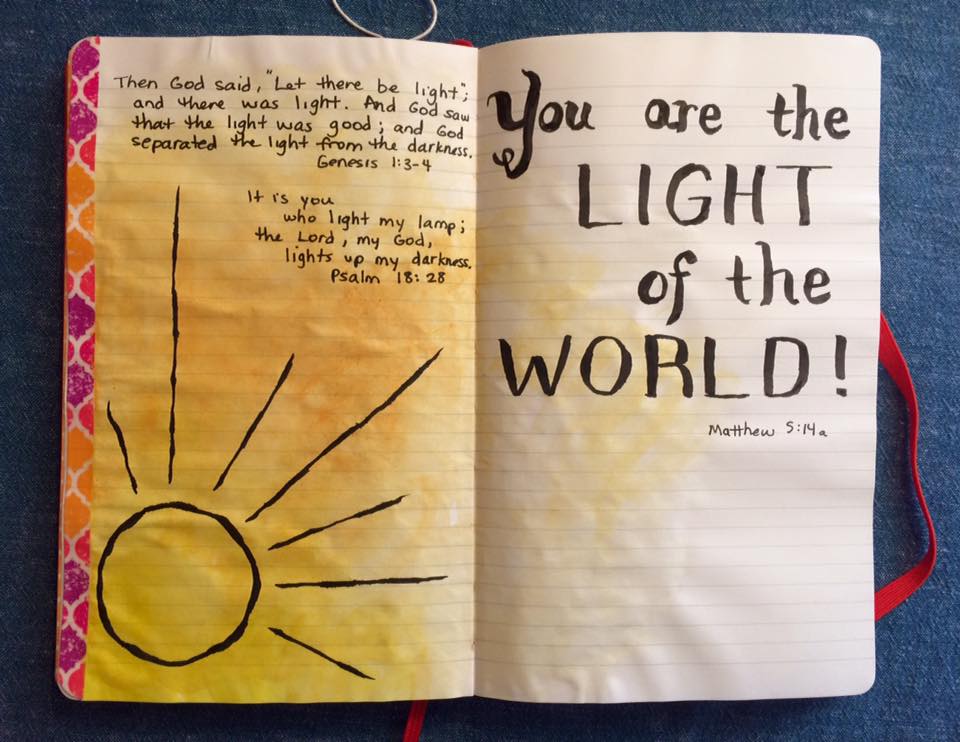 Then God said, "Let there be light";
and there was light. And God saw
that the light was good; and God
separated the light from the darkness.
Genesis 1:3-4
It is you
who light my lamp;
the Lord, my God,
lights up my darkness.
Psalm 18:28
You are the
LIGHT
of the
WORLD!
Matthew 5:14a